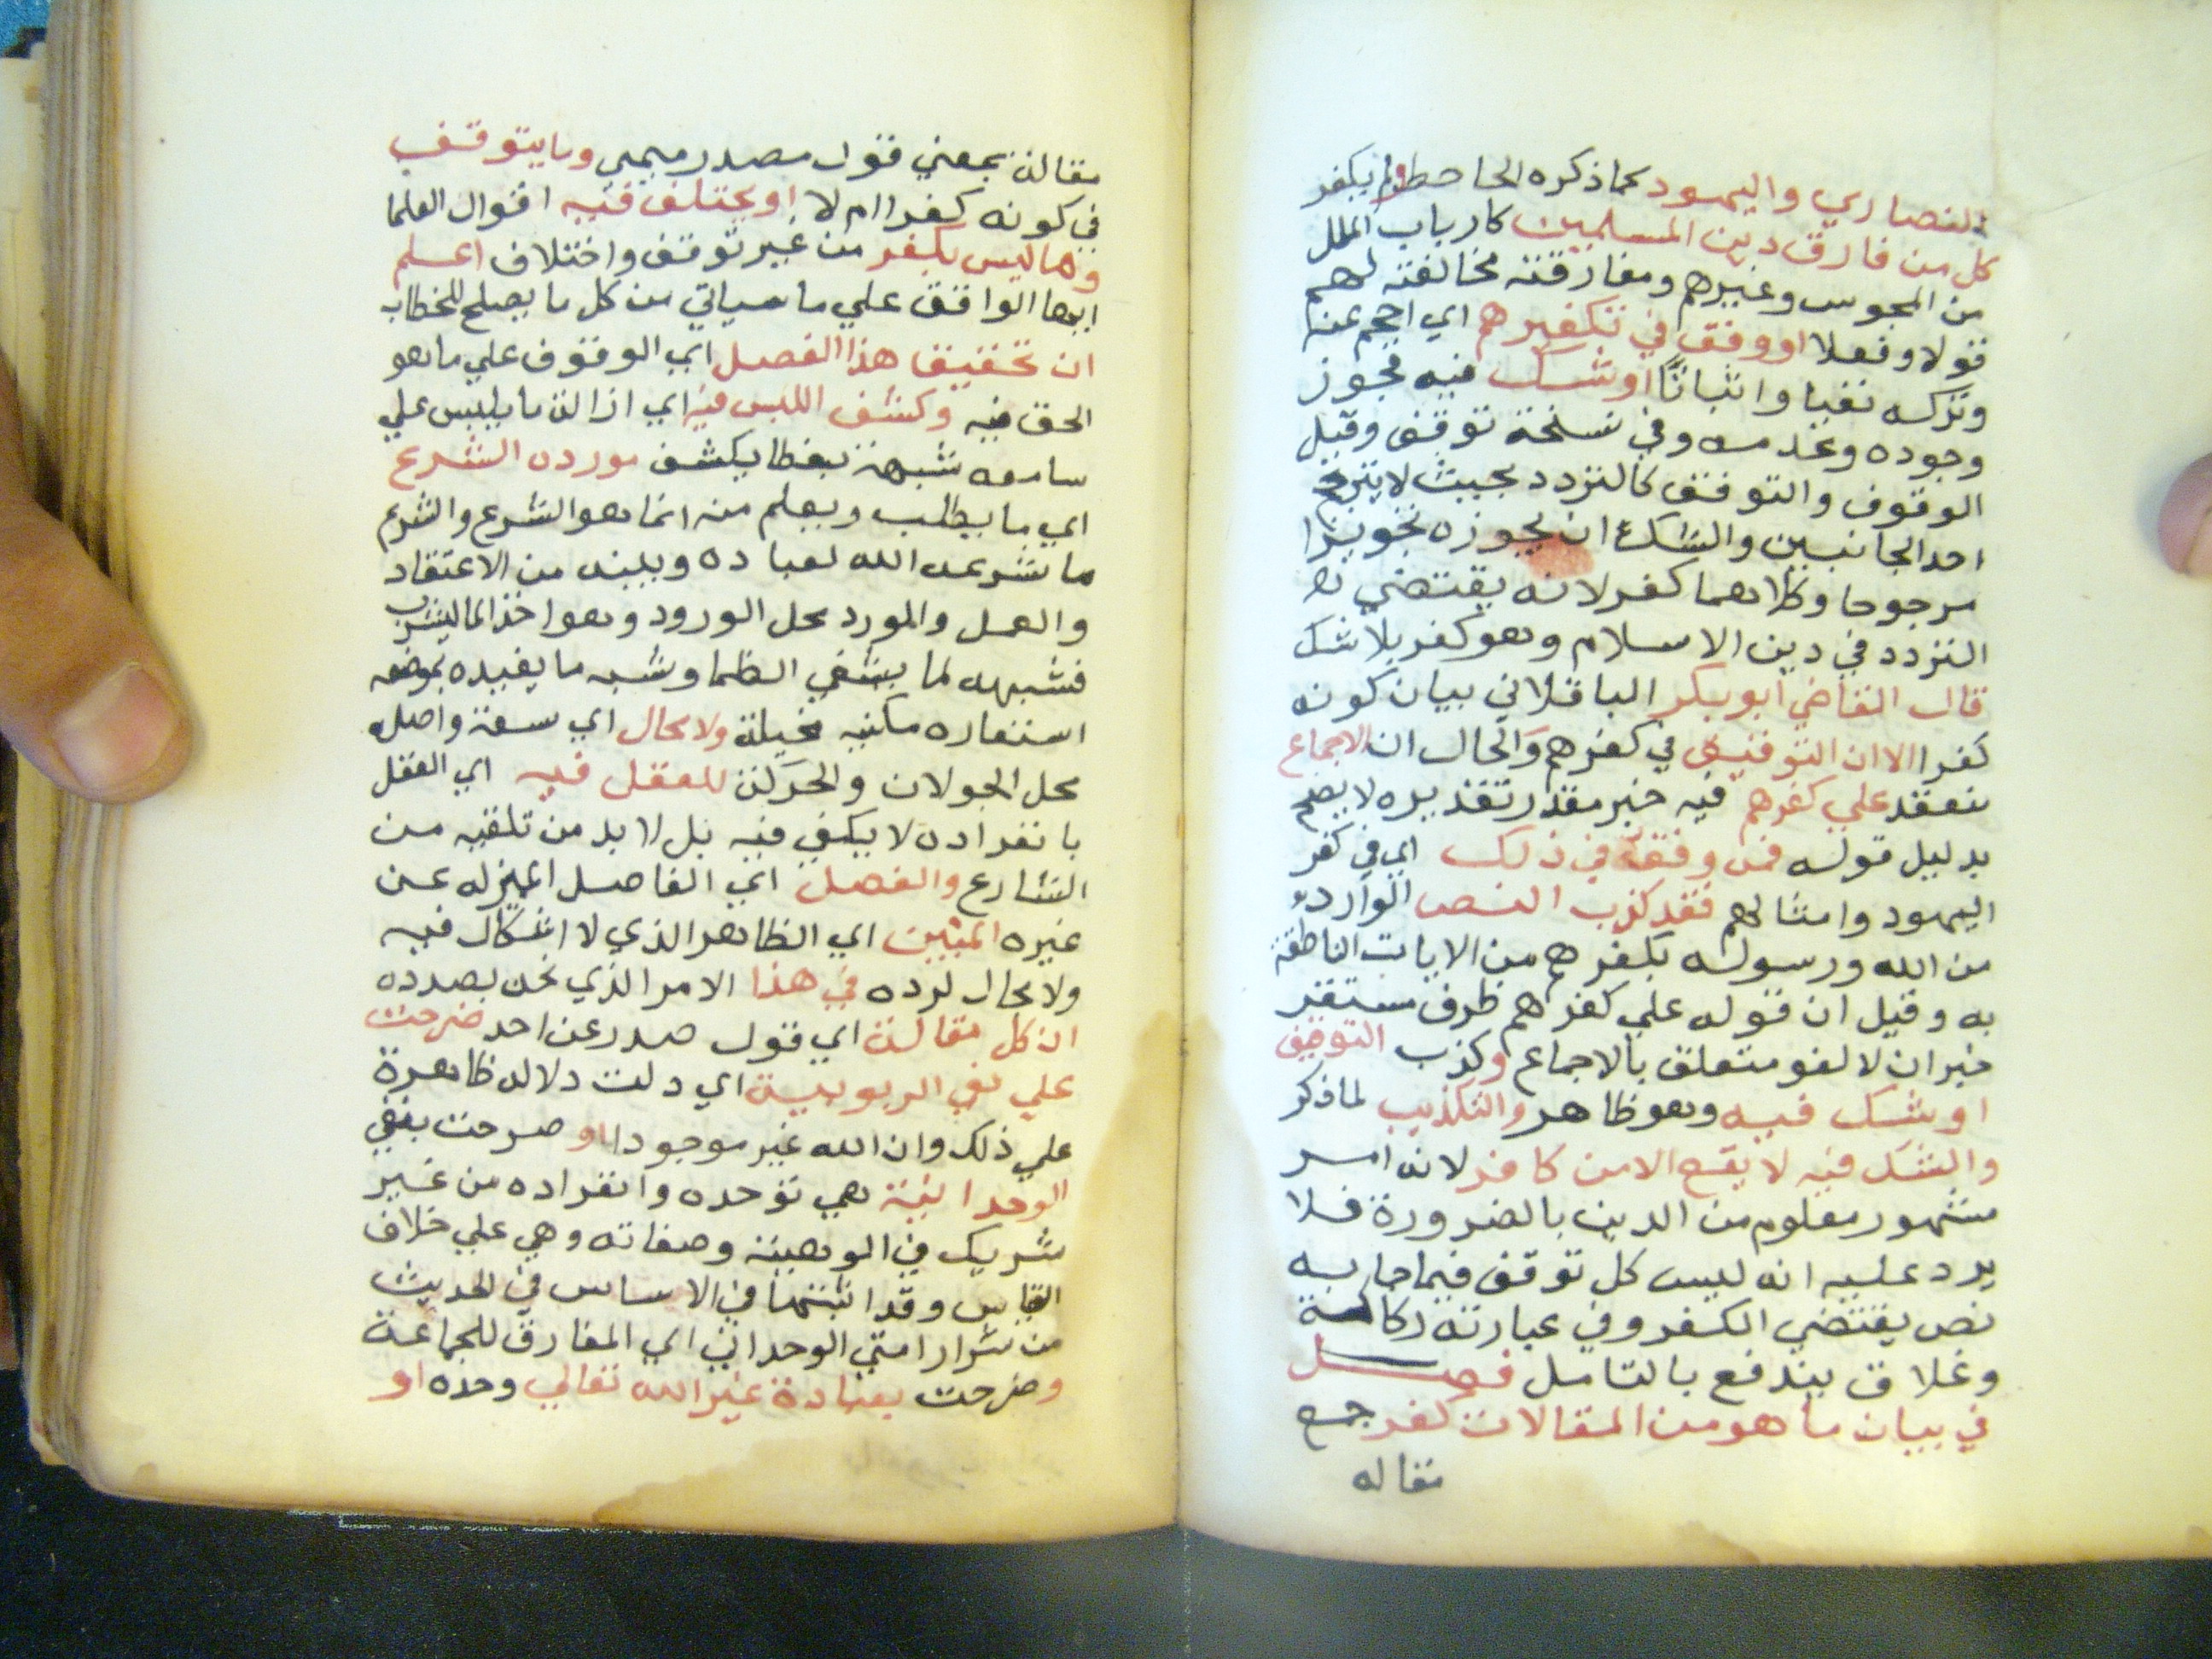 النصاري واليهود كما ذكره الجاحظ ولم يكفر
كل من فارق دين المسلمين كارباب الملل
من المجوس وغيرهم ومفارقته مخالفته لهم
قولا وفعلا او وقف في تكفيرهم اي احجم عنه
وتركه نفيا واثباتًا او شك فيه فجوز
وجوده وعدمه وفي نسخة توقف وقيل
الوقوف والتوقف كالتردد بحيث لا يترجح
احد الجانبين والشك ان يجوزه تجويزا
مرجوحا وكلاهما كفر لانه يقتضي
التردد في دين الاسلام وهو كفر بلا شك
قال القاضي ابو بكر الباقلاني بيان كونه
كفرا الا ان التوقيف في كفرهم والحال ان الاجماع
منعقد علي كفرهم فيه خبر مقدر تقديره لا يصح
بدليل قوله فمن وقف في ذلك اي في كفر
اليهود وامثالهم فقد كذب النص الوارد
من الله ورسوله بكفرهم من الايات الناطقة
به وقيل ان قوله علي كفرهم ظرف مستقر
خبر ان لا لغو متعلق بالاجماع وكذب التوقيف
او شك فيه وهو ظاهر والتكذيب لما ذكر
والشك فيه لا يقع الا من كافر لانه امر
مشهور معلوم من الدين بالضرورة فلا
يرد عليه انه ليس كل توقف فيما جا به
نص يقتضي الكفر وفي عبارته ركاكة
وغلاق يندفع بالتامل فصل
في بيان ما هو من المقالات كفر جمع
مقاله
مقالة بمعني قول مصدر ميمي وما يتوقف
في كونه كفرا ام لا او يختلف فيه اقوال العلما
وما ليس بكفر من غير توقف واختلاف اعلم
ايها الواقف علي ما سياتي من كل ما يصلح للخطاب
ان تحقيق هذا الفصل اي الوقوف علي ما هو
الحق فيه وكشف اللبس فيه اي ازالة ما يلبس علي
سامعه شبهة بغطا يكشف مورده الشرع
اي ما يطلب ويعلم منه انما هو الشرع والشرع
ما شرعه الله لعباده وبينه من الاعتقاد
والعمل والمورد محل الورود وهو اخذ الما ليشرب
فشبهه لما يشفي الظما وشبه ما يفيده بموضعه
استعاره مكنيه مخيلة ولا مجال اي سعة واصله
محل الجولان والحركة للعقل فيه اي العقل
بانفراده لا يكفي فيه بل لا بد من تلقيه من
الشارع والفصل اي الفاصل المميز له عن
غيره المبين اي الظاهر الذي لا اشكال فيه
ولا مجال لرده في هذا الامر الذي نحن بصدده
ان كل مقالة اي قول صدر عن احد صرحت
علي نفي الربوبية اي دلت دلاله ظاهرة
علي ذلك وان الله غير موجود او صرحت بنفي
الوحدانية هي توحده وانفراده من غير
شريك في الوهيته وصفاته وهي علي خلاف
القياس وقد اثبتها في الاساس في الحديث
من شرار امتي الوحداني اي المفارق للجماعة
وصرحت بعبادة غير الله تعالي وحده او